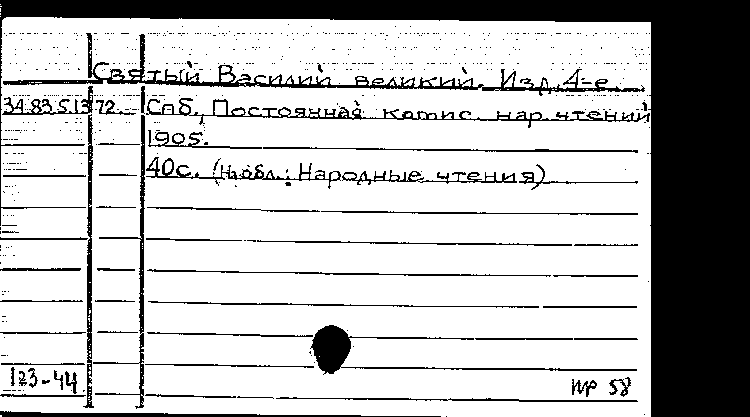 Святый Василий великий. Изд. 4-е.
34.83.5.1372. Спб., Постоянная комис. нар. чтений
1905.
40с. (На обл.: Народные чтения)
123-44
пр 58